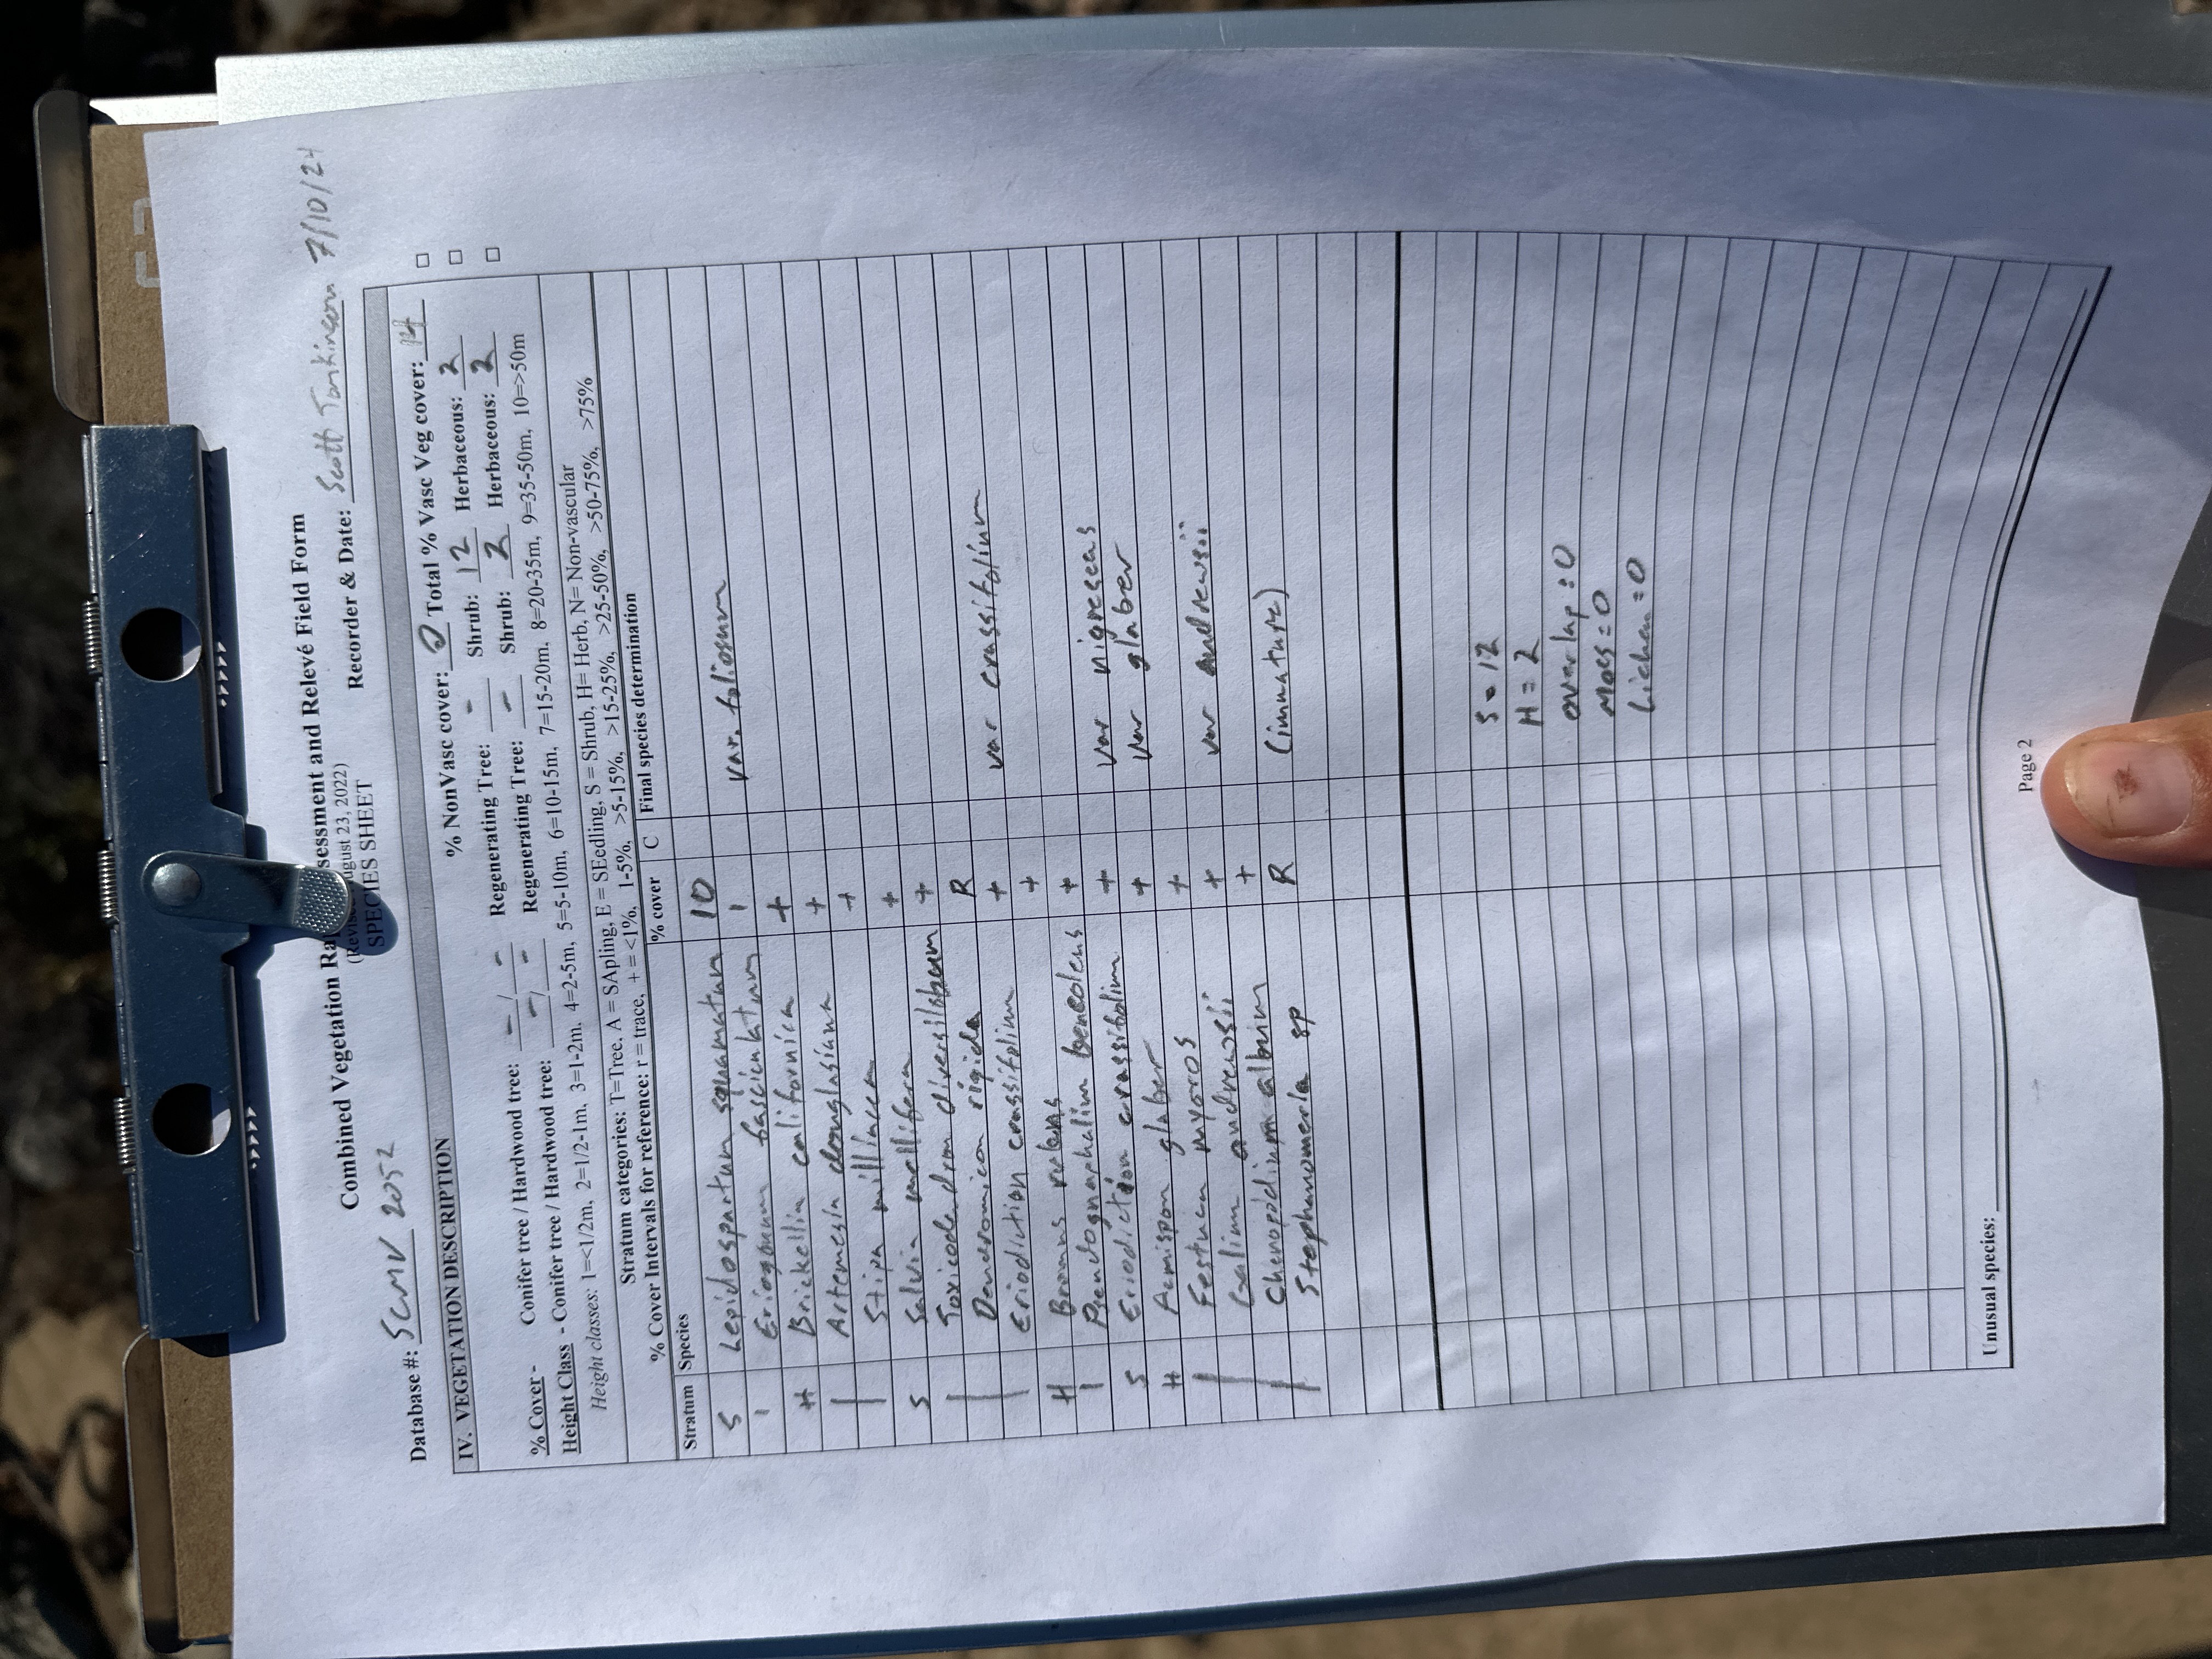 Combined Vegetation Ra sessment and Relevé Field Form
(Revise ugust 23, 2022)
SPECIES SHEET
Database #: SCMV 2052 Recorder & Date: Scott 7/10/24
IV. VEGETATION DESCRIPTION
% NonVasc cover: 0 Total % Vasc Veg cover: 14
% Cover - Conifer tree / Hardwood tree: - / - Regenerating Tree: - Shrub: 12 Herbaceous: 2
Height Class - Conifer tree / Hardwood tree: - / - Regenerating Tree: - Shrub: 2 Herbaceous: 2
Height classes: 1=<1/2m, 2=1/2-1m, 3=1-2m, 4=2-5m, 5=5-10m, 6=10-15m, 7=15-20m, 8=20-35m, 9=35-50m, 10=>50m
Stratum categories: T=Tree, A = SApling, E = SEedling, S = Shrub, H= Herb, N= Non-vascular
% Cover Intervals for reference: r = trace, + = <1%, 1-5%, >5-15%, >15-25%, >25-50%, >50-75%, >75%
Stratum Species % cover C Final species determination
S Lepidospartum squamatum 10
| Eriogonum fasciculatum 1 var. foliosum
H Brickellia californica +
| Artemesia douglasiana +
| Stipa miliacea +
S Salvia mellifera +
| Toxicodendron diversilobum +
Dendromicon rigida R
| Eriodiction crassifolium + var crassifolium
H Bromus rubens +
| Pseudognaphalium beneolens +
S Eriodiction crassifolium + var nigrescens
H Acmispon glaber + var glaber
| Festuca myoros +
Galium andrewsii + var andrewsii
| Chenopodium album +
| Stephanomeria sp R (immature)
S = 12
H = 2
overlap = 0
Moss = 0
Lichen = 0
Unusual species:
Page 2